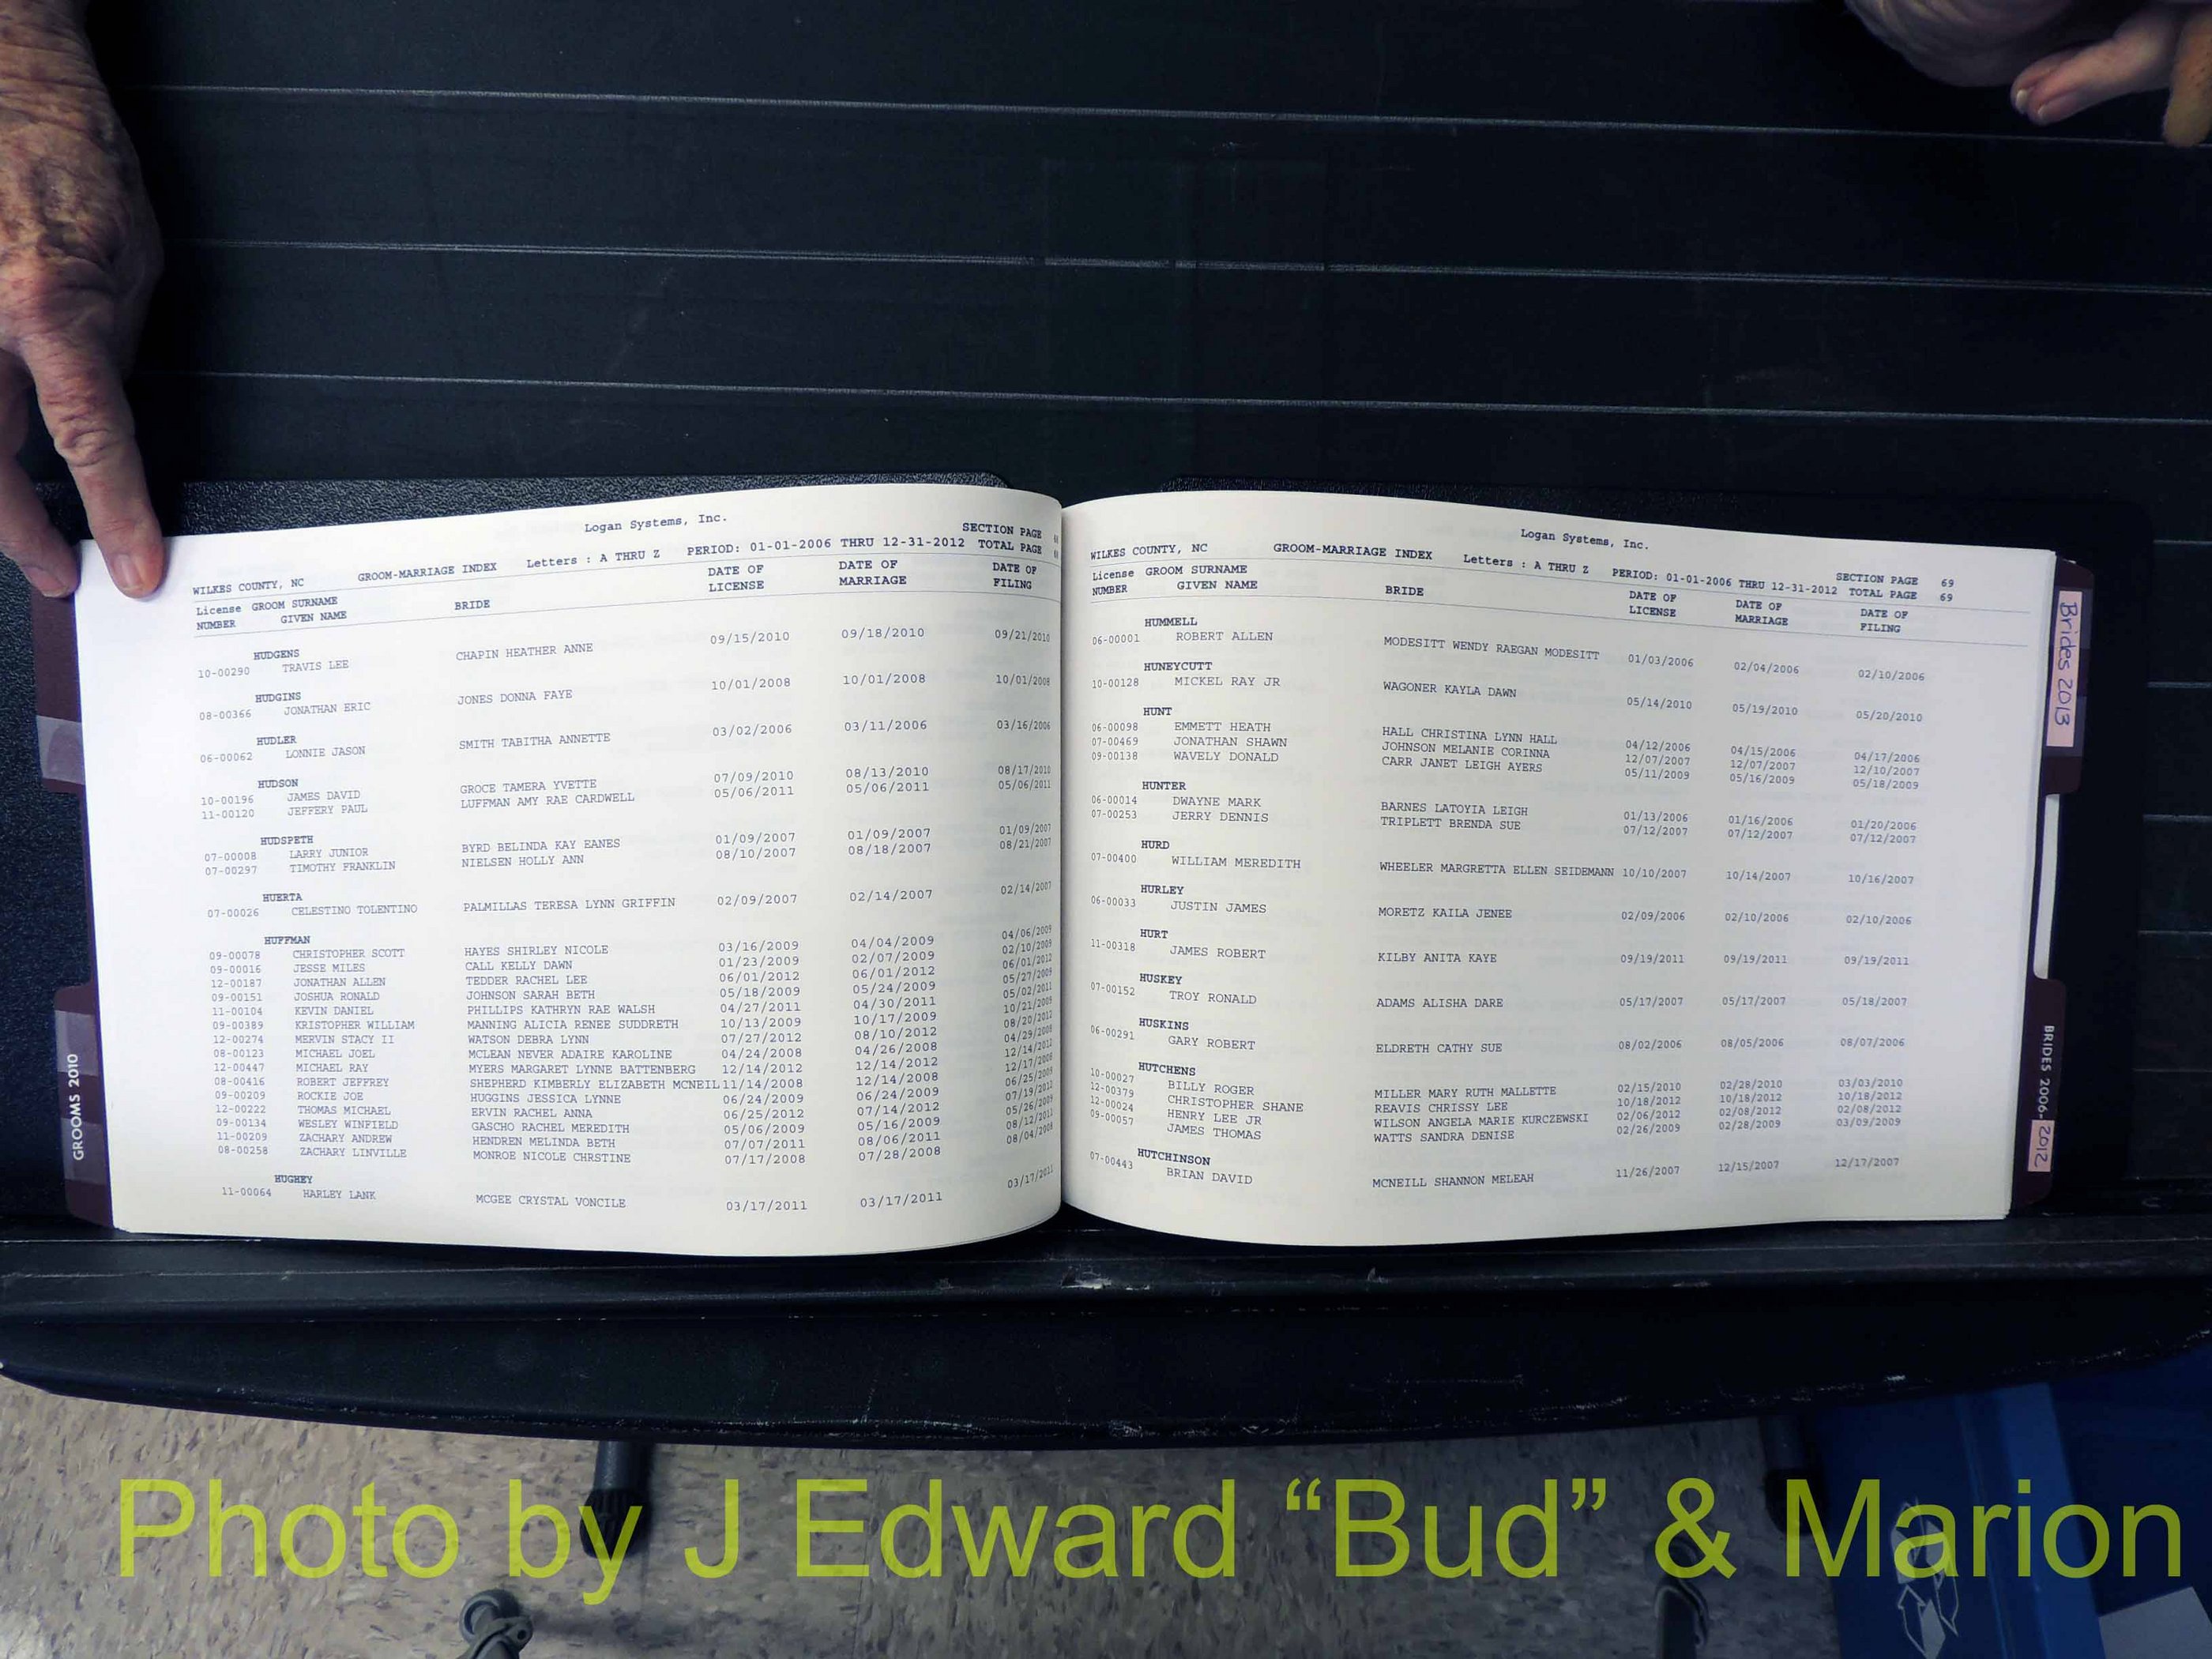 Logan Systems, Inc.
WILKES COUNTY, NC GROOM-MARRIAGE INDEX Letters : A THRU Z PERIOD: 01-01-2006 THRU 12-31-2012 SECTION PAGE
TOTAL PAGE
License GROOM SURNAME BRIDE DATE OF DATE OF DATE OF
NUMBER GIVEN NAME LICENSE MARRIAGE FILING
HUDGENS
10-00290 TRAVIS LEE CHAPIN HEATHER ANNE 09/15/2010 09/18/2010 09/21/2010
HUDGINS
08-00366 JONATHAN ERIC JONES DONNA FAYE 10/01/2008 10/01/2008 10/01/2008
HUDLER
06-00062 LONNIE JASON SMITH TABITHA ANNETTE 03/02/2006 03/11/2006 03/16/2006
HUDSON
10-00196 JAMES DAVID GROCE TAMERA YVETTE 07/09/2010 08/13/2010 08/17/2010
11-00120 JEFFERY PAUL LUFFMAN AMY RAE CARDWELL 05/06/2011 05/06/2011 05/06/2011
HUDSPETH
07-00008 LARRY JUNIOR BYRD BELINDA KAY EANES 01/09/2007 01/09/2007 01/09/2007
07-00297 TIMOTHY FRANKLIN NIELSEN HOLLY ANN 08/10/2007 08/18/2007 08/21/2007
HUERTA
07-00026 CELESTINO TOLENTINO PALMILLAS TERESA LYNN GRIFFIN 02/09/2007 02/14/2007 02/14/2007
HUFFMAN
09-00078 CHRISTOPHER SCOTT HAYES SHIRLEY NICOLE 03/16/2009 04/04/2009 04/06/2009
09-00016 JESSE MILES CALL KELLY DAWN 01/23/2009 02/07/2009 02/10/2009
12-00187 JONATHAN ALLEN TEDDER RACHEL LEE 06/01/2012 06/01/2012 06/01/2012
09-00151 JOSHUA RONALD JOHNSON SARAH BETH 05/18/2009 05/24/2009 05/27/2009
11-00104 KEVIN DANIEL PHILLIPS KATHRYN RAE WALSH 04/27/2011 04/30/2011 05/02/2011
09-00389 KRISTOPHER WILLIAM MANNING ALICIA RENEE SUDDRETH 10/13/2009 10/17/2009 10/21/2009
12-00274 MERVIN STACY II WATSON DEBRA LYNN 07/27/2012 08/10/2012 08/20/2012
08-00123 MICHAEL JOEL MCLEAN NEVER ADAIRE KAROLINE 04/24/2008 04/26/2008 04/29/2008
12-00447 MICHAEL RAY MYERS MARGARET LYNNE BATTENBERG 12/14/2012 12/14/2012 12/14/2012
08-00416 ROBERT JEFFREY SHEPHERD KIMBERLY ELIZABETH MCNEIL 11/14/2008 12/14/2008 12/17/2008
09-00209 ROCKIE JOE HUGGINS JESSICA LYNNE 06/24/2009 06/24/2009 06/25/2009
12-00222 THOMAS MICHAEL ERVIN RACHEL ANNA 06/25/2012 07/14/2012 07/19/2012
09-00134 WESLEY WINFIELD GASCHO RACHEL MEREDITH 05/06/2009 05/16/2009 05/26/2009
11-00209 ZACHARY ANDREW HENDREN MELINDA BETH 07/07/2011 08/06/2011 08/12/2011
08-00258 ZACHARY LINVILLE MONROE NICOLE CHRSTINE 07/17/2008 07/28/2008 08/04/2008
HUGHEY
11-00064 HARLEY LANK MCGEE CRYSTAL VONCILE 03/17/2011 03/17/2011 03/17/2011
GROOMS 2010
Logan Systems, Inc.
WILKES COUNTY, NC GROOM-MARRIAGE INDEX Letters : A THRU Z PERIOD: 01-01-2006 THRU 12-31-2012 SECTION PAGE 69
TOTAL PAGE 69
License GROOM SURNAME BRIDE DATE OF DATE OF DATE OF
NUMBER GIVEN NAME LICENSE MARRIAGE FILING
HUMMELL
06-00001 ROBERT ALLEN MODESITT WENDY RAEGAN MODESITT 01/03/2006 02/04/2006 02/10/2006
HUNEYCUTT
10-00128 MICKEL RAY JR WAGONER KAYLA DAWN 05/14/2010 05/19/2010 05/20/2010
HUNT
06-00098 EMMETT HEATH HALL CHRISTINA LYNN HALL 04/12/2006 04/15/2006 04/17/2006
07-00469 JONATHAN SHAWN JOHNSON MELANIE CORINNA 12/07/2007 12/07/2007 12/10/2007
09-00138 WAVELY DONALD CARR JANET LEIGH AYERS 05/11/2009 05/16/2009 05/18/2009
HUNTER
06-00014 DWAYNE MARK BARNES LATOYIA LEIGH 01/13/2006 01/16/2006 01/20/2006
07-00253 JERRY DENNIS TRIPLETT BRENDA SUE 07/12/2007 07/12/2007 07/12/2007
HURD
07-00400 WILLIAM MEREDITH WHEELER MARGRETTA ELLEN SEIDEMANN 10/10/2007 10/14/2007 10/16/2007
HURLEY
06-00033 JUSTIN JAMES MORETZ KAILA JENEE 02/09/2006 02/10/2006 02/10/2006
HURT
11-00318 JAMES ROBERT KILBY ANITA KAYE 09/19/2011 09/19/2011 09/19/2011
HUSKEY
07-00152 TROY RONALD ADAMS ALISHA DARE 05/17/2007 05/17/2007 05/18/2007
HUSKINS
06-00291 GARY ROBERT ELDRETH CATHY SUE 08/02/2006 08/05/2006 08/07/2006
HUTCHENS
10-00027 BILLY ROGER MILLER MARY RUTH MALLETTE 02/15/2010 02/28/2010 03/03/2010
12-00379 CHRISTOPHER SHANE REAVIS CHRISSY LEE 10/18/2012 10/18/2012 10/18/2012
12-00024 HENRY LEE JR WILSON ANGELA MARIE KURCZEWSKI 02/06/2012 02/08/2012 02/08/2012
09-00057 JAMES THOMAS WATTS SANDRA DENISE 02/26/2009 02/28/2009 03/09/2009
HUTCHINSON
07-00443 BRIAN DAVID MCNEILL SHANNON MELEAH 11/26/2007 12/15/2007 12/17/2007
Brides 2013
BRIDES 2006-2012
Photo by J Edward “Bud” & Marion